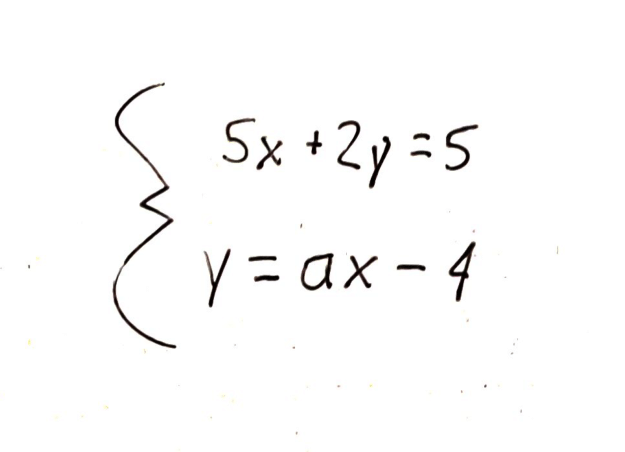 5x+2y=5
y=ax-4